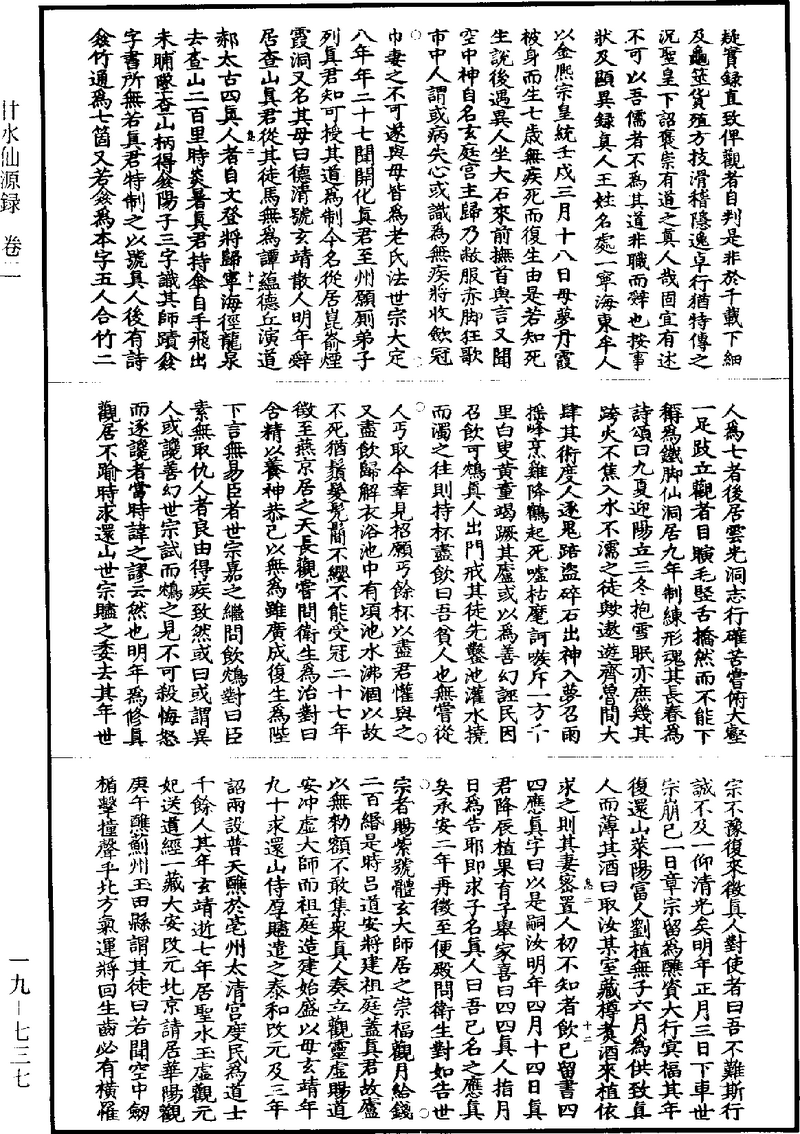 疑實録直致俾觀者自判是非於千載下細
及龜筮貨殖方技滑稽隱逸卓行猶特傳之
況聖皇下詔褒崇有道之真人哉固宜有述
不可以吾儒者不為其道非職而辭也按事
狀及顯異録真人王姓名處一寧海東牟人
以金熙宗皇統壬戌三月十八日母夢丹霞
被身而生七歲無疾死而復生由是若知死
生說後遇異人坐大石來前撫首與言又聞
空中神自名玄庭宮主歸乃敝服赤脚狂歌
市中人謂或病失心或識為無疾將收飲冠
巾妻之不可遂與母皆為老氏法世宗大定
八年年二十七聞開化真君至州願厠弟子
列真君知可授其道為制今名從居崑崳煙
霞洞又名其母曰德清號玄靖散人明年辭
居查山真君從其徒馬無為譚蘊德丘演道
郝太古四真人者自文登將歸寧海徑龍泉
去查山二百里時炎暑真君持傘自手飛出
未晡墜查山柄得傘陽子三字識其師蹟傘
字書所無若真君特制之以號真人後有詩
傘竹通為七箇又若傘為本字五人合竹二
人為七者後居雲光洞志行確苦嘗俯大壑
一足跂立觀者目瞚毛竪舌撟然而不能下
稱為鐵脚仙洞居九年制練形魂其長春為
詩頌曰九夏迎陽立三冬抱雪眠亦庶幾其
跨火不焦入水不濡之徒歟遨遊齊魯間大
肆其術度人逐鬼踣盜碎石出神入夢召雨
摇峰烹雞降鶴起死噓枯麾訶嗾斥一方千
里白叟黄童竭蹶其廬或以為善幻誣民因
召飲可鴆真人出門戒其徒先鑿池灌水撓
而濁之往則持杯盡飲曰吾貧人也無嘗從
人丐取今幸見招願丐餘杯以盡君懽與之
又盡飲歸解衣浴池中有頃池水沸涸以故
不死猶鬚髮髡鬝不纓不能受冠二十七年
徵至燕京居之天長觀嘗問衛生為治對曰
含精以養神恭己以無為雖廣成復生為陛
下言無易臣者世宗嘉之繼問飲鴆對曰臣
素無取仇人者良由得疾致然或曰或謂異
人或讒善幻世宗試而鴆之見不可殺悔怒
而逐讒者當時諱之謬云然也明年為修真
觀居不踰時求還山世宗贐之委去其年世
宗不豫復來徵真人對使者曰吾不難斯行
誠不及一仰清光矣明年正月三日下車世
宗崩已一日章宗留為醮資大行冥福其年
復還山萊陽富人劉植無子六月為供致真
人而薄其酒曰取汝某室藏樽煑酒來植依
求之則其妻密置人初不知者飲已留書四
四應真字曰以是嗣汝明年四月十四日真
君降辰植果育子舉家喜曰四四真人指月
日為告耶即求子名真人曰吾已名之應真
矣承安二年再徵至便殿問衛生對如告世
宗者賜紫號體玄大師居之崇福觀月給錢
二百緡是時吕道安將建祖庭蓋真君故廬
以無勑額不敢集衆真人奏立觀靈虚賜道
安冲虚大師而祖庭造建始盛以母玄靖年
九十求還山侍厚贐遣之泰和改元及三年
詔兩設普天醮於亳州太清宮度民為道士
千餘人其年玄靖逝七年居聖水玉虚觀元
妃送道經一藏大安改元北京請居華陽觀
庚午醮薊州玉田縣謂其徒曰若聞空中劒
楯擊撞聲乎北方氣運將回生齒必有横罹
甘水仙源録 卷二
一九-七三七